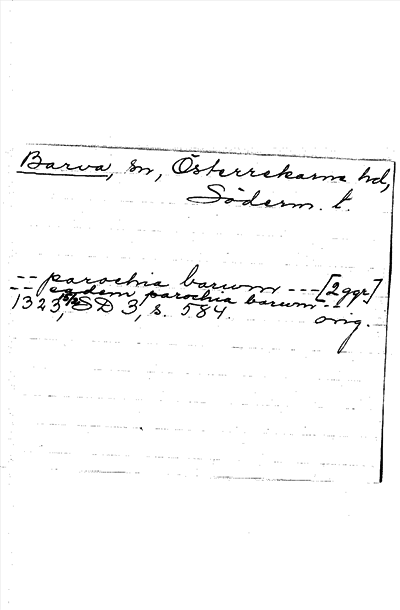 Barva, sn, Österrekarne hd,
Söderm. l.
-- parochia barum --- [2 ggr]
-- eadem parochia barum --
1323, SD 3, s. 584. orig.